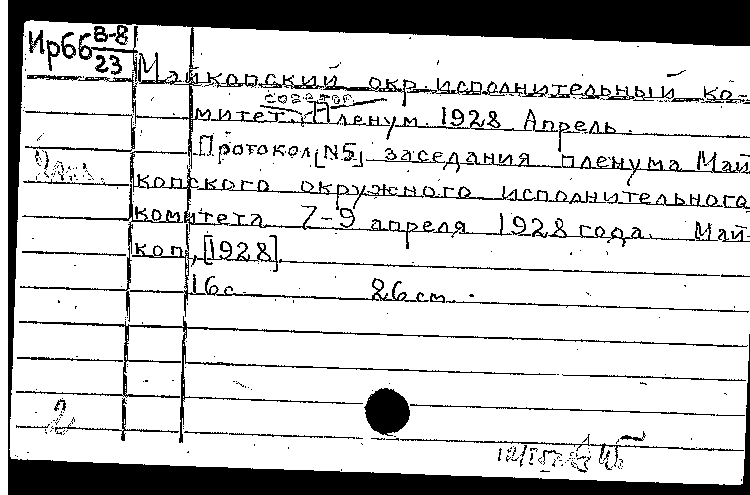 Ир66 В-8/23
Майкопский окр. исполнительный ко-
советов
митет. Пленум. 1928 Апрель.
Протокол [N5] заседания пленума Май
копского окружного исполнительного
комитета 7-9 апреля 1928 года. Май-
коп, [1928].
16 с. 26 см.
2